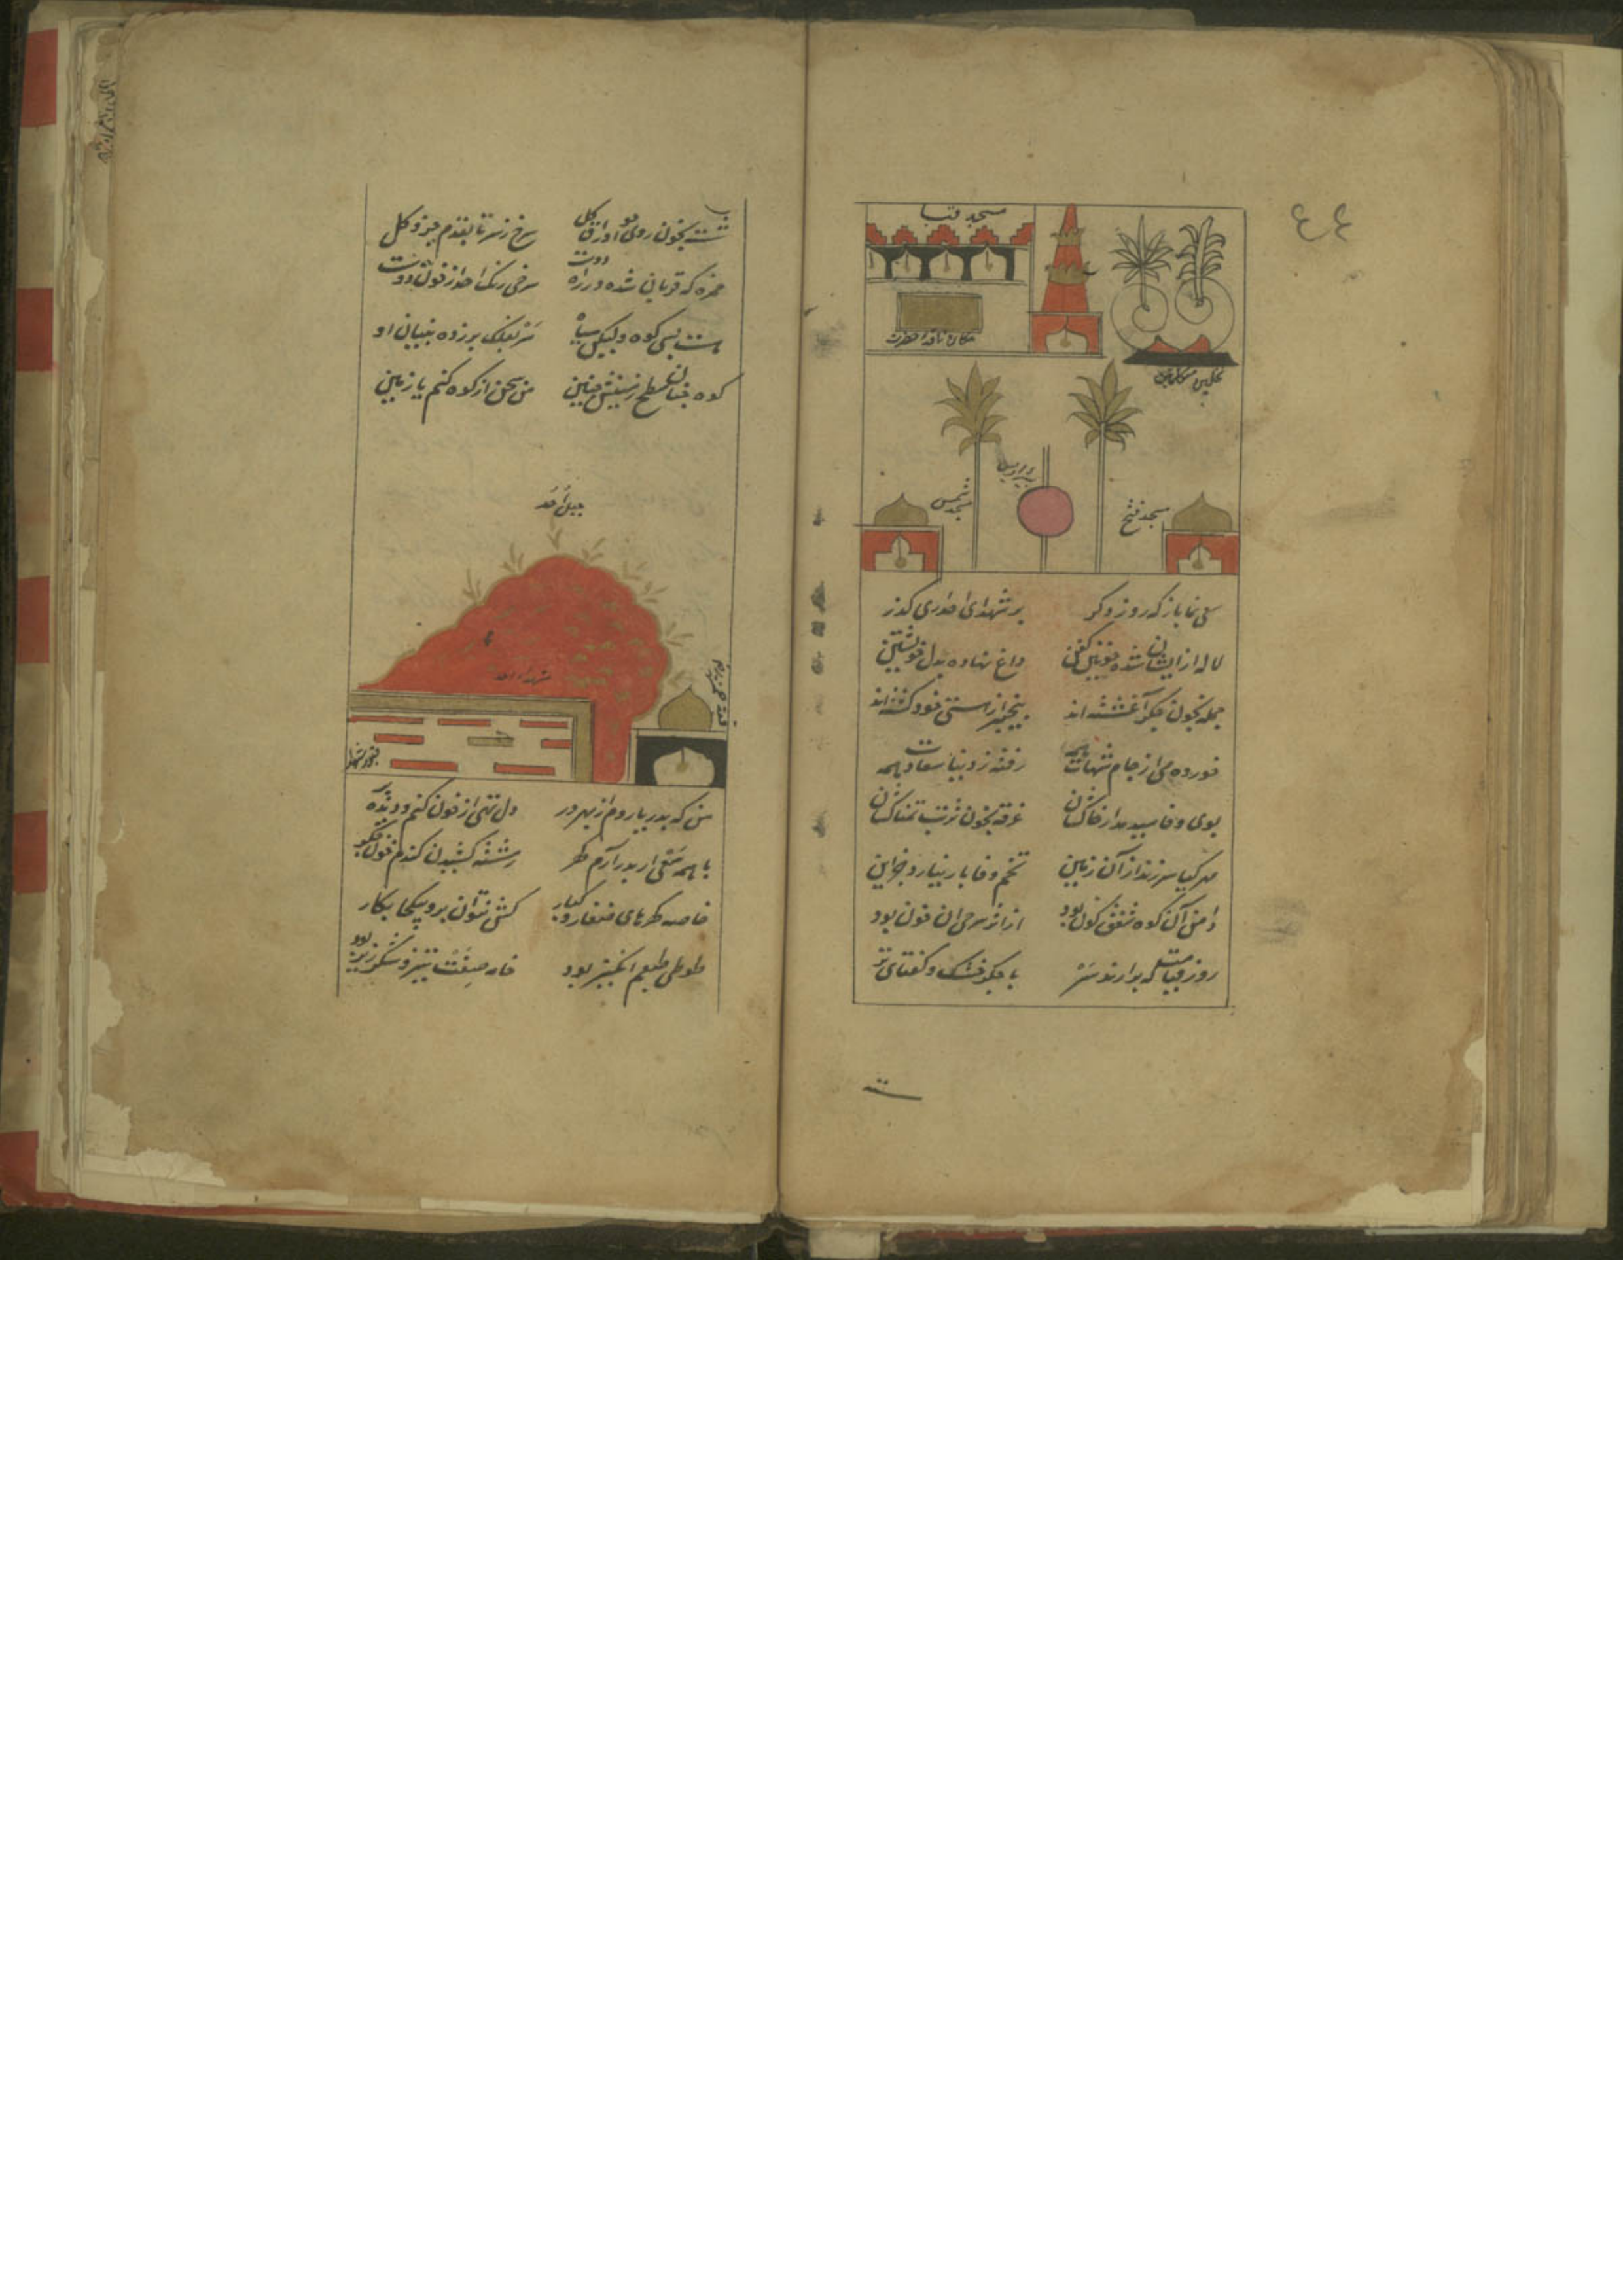 ٤٤
مسجد قبا
مکان ناقه حضرت
نخلین
مسجد شمس
بیر اریس
مسجد فتح
سعی نما باز که روز دگر بر شهدای احد آری گذر
لاله از ایشان شده خونین کفن داغ نهاده بدل خویشتن
جمله بخون جگر آغشته‌اند بیخبر از هستی خود گشته‌اند
خورده می از جام شهادت همه رفته ز دنیا بسعادت همه
بوی وفا میدمد از خاکشان غرقه بخون تربت نمناکشان
مهر گیا سر زند از آن زمین تخم وفا بار نیارد جز این
دامن آن کوه شفق گون بود از اثر سرخی آن خون بود
روز قیامت که برآرند سر با جگر خشک و کفنهای تر
شسته
شسته بخون روی چو اوراق گل سرخ ز سر تا بقدم جزو کل
حمزه که قربان شده در راه دوست سرخی رنگ احد از خون اوست
هست بسی کوه ولیکن سیاه سر بفلک برزده بنیان او
کوه چنان سطح زمینش چنین من سخن از کوه کنم یا زمین
جبل احد
شهداء احد
قبور شهدا
من که بدریا روم از بهر در دل تهی از خون کنم و دیده پر
با همه سعی ار بدر آرم گهر رشته کشیدن کندم خون جگر
خاصه گهرهای صغار و کبار کش نتوان برد بیکجا بکار
طوطی طبعم انگیز بود خامه صفت تیز و شکرریز بود